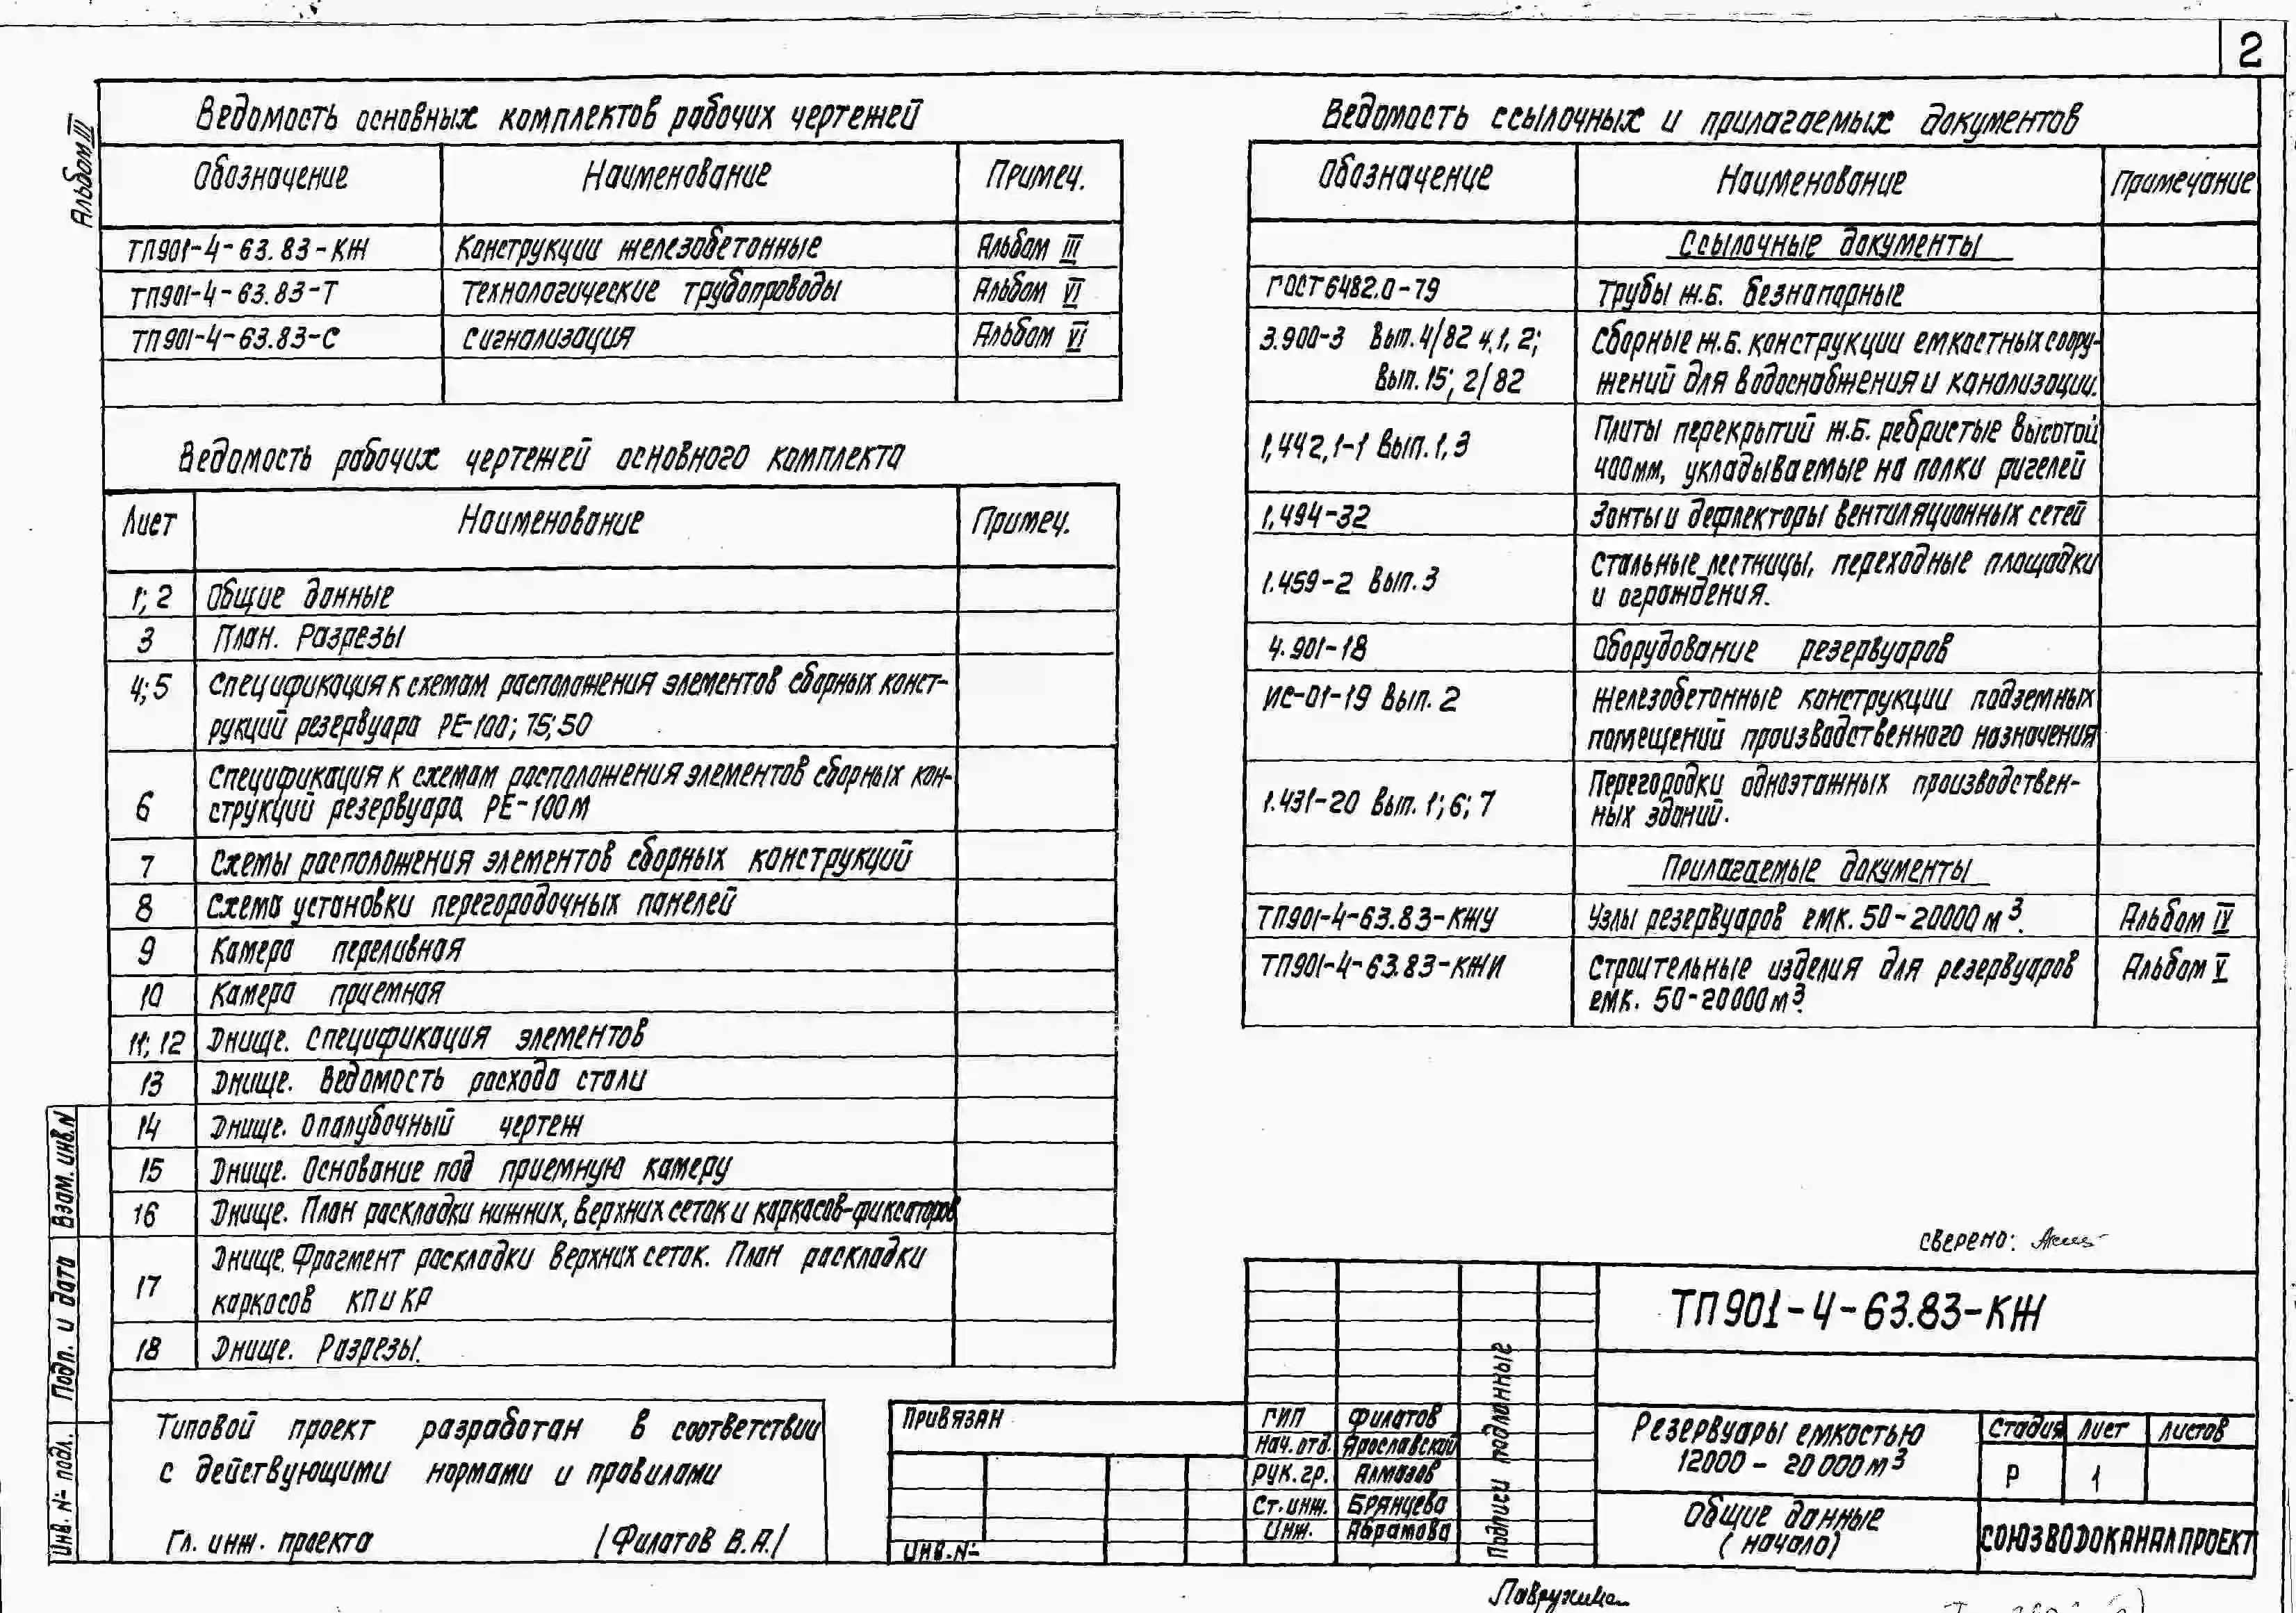 2
Альбом III
Ведомость основных комплектов рабочих чертежей
Обозначение Наименование Примеч.
ТП901-4-63.83-КЖ Конструкции железобетонные Альбом III
ТП901-4-63.83-Т Технологические трубопроводы Альбом VI
ТП901-4-63.83-С Сигнализация Альбом VI
Ведомость рабочих чертежей основного комплекта
Лист Наименование Примеч.
1; 2 Общие данные
3 План. Разрезы
4; 5 Спецификация к схемам расположения элементов сборных конст-
рукций резервуара РЕ-100; 75; 50
Спецификация к схемам расположения элементов сборных кон-
6 струкций резервуара РЕ-100м
7 Схемы расположения элементов сборных конструкций
8 Схема установки перегородочных панелей
9 Камера переливная
10 Камера приемная
11; 12 Днище. Спецификация элементов
13 Днище. Ведомость расхода стали
14 Днище. Опалубочный чертеж
15 Днище. Основание под приемную камеру
16 Днище. План раскладки нижних, верхних сеток и каркасов-фиксаторов
Днище. Фрагмент раскладки верхних сеток. План раскладки
17 каркасов КП и КР
18 Днище. Разрезы.
Типовой проект разработан в соответствии
с действующими нормами и правилами
Гл. инж. проекта /Филатов В.А./
Взам. инв.N
Подп. и дата
Инв. № подл.
Ведомость ссылочных и прилагаемых документов
Обозначение Наименование Примечание
Ссылочные документы
ГОСТ 6482.0-79 Трубы ж.б. безнапорные
3.900-3 Вып. 4/82 ч.1, 2; Сборные ж.б. конструкции емкостных соору-
Вып. 15; 2/82 жений для водоснабжения и канализации.
Плиты перекрытий ж.б. ребристые высотой
1,442,1-1 Вып. 1,3 400мм, укладываемые на полки ригелей
1,494-32 Зонты и дефлекторы вентиляционных сетей
1.459-2 Вып. 3 Стальные лестницы, переходные площадки
и ограждения.
4.901-18 Оборудование резервуаров
ИС-01-19 Вып. 2 Железобетонные конструкции подземных
помещений производственного назначения
1.431-20 Вып. 1; 6; 7 Перегородки одноэтажных производствен-
ных зданий.
Прилагаемые документы
ТП901-4-63.83-КЖУ Узлы резервуаров емк. 50-20000 м³. Альбом IV
ТП901-4-63.83-КЖИ Строительные изделия для резервуаров Альбом V
емк. 50-20000м³.
сверено:
ТП901-4-63.83-КЖ
Привязан
Инв.№
ГИП Филатов
Нач. отд. Ярославский
Рук. гр. Алмазов
Ст. инж. Брянцева
Инж. Абрамова
Подписи подлинные
Резервуары емкостью
12000 - 20000м³
Стадия Лист Листов
Р 1
Общие данные
(начало)
СОЮЗВОДОКАНАЛПРОЕКТ